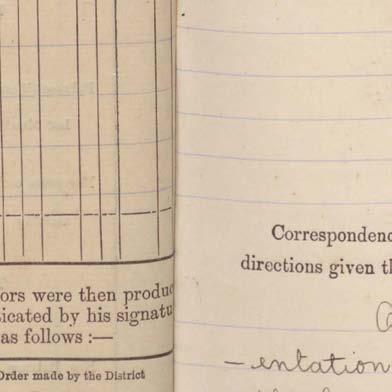 ors were then produc
icated by his signatu
as follows :—
Order made by the District
Correspondenc
directions given th
- entation